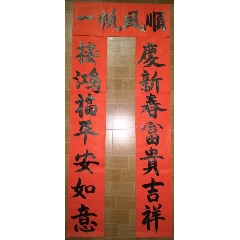 一帆風順
慶新春富貴吉祥
接鴻福平安如意